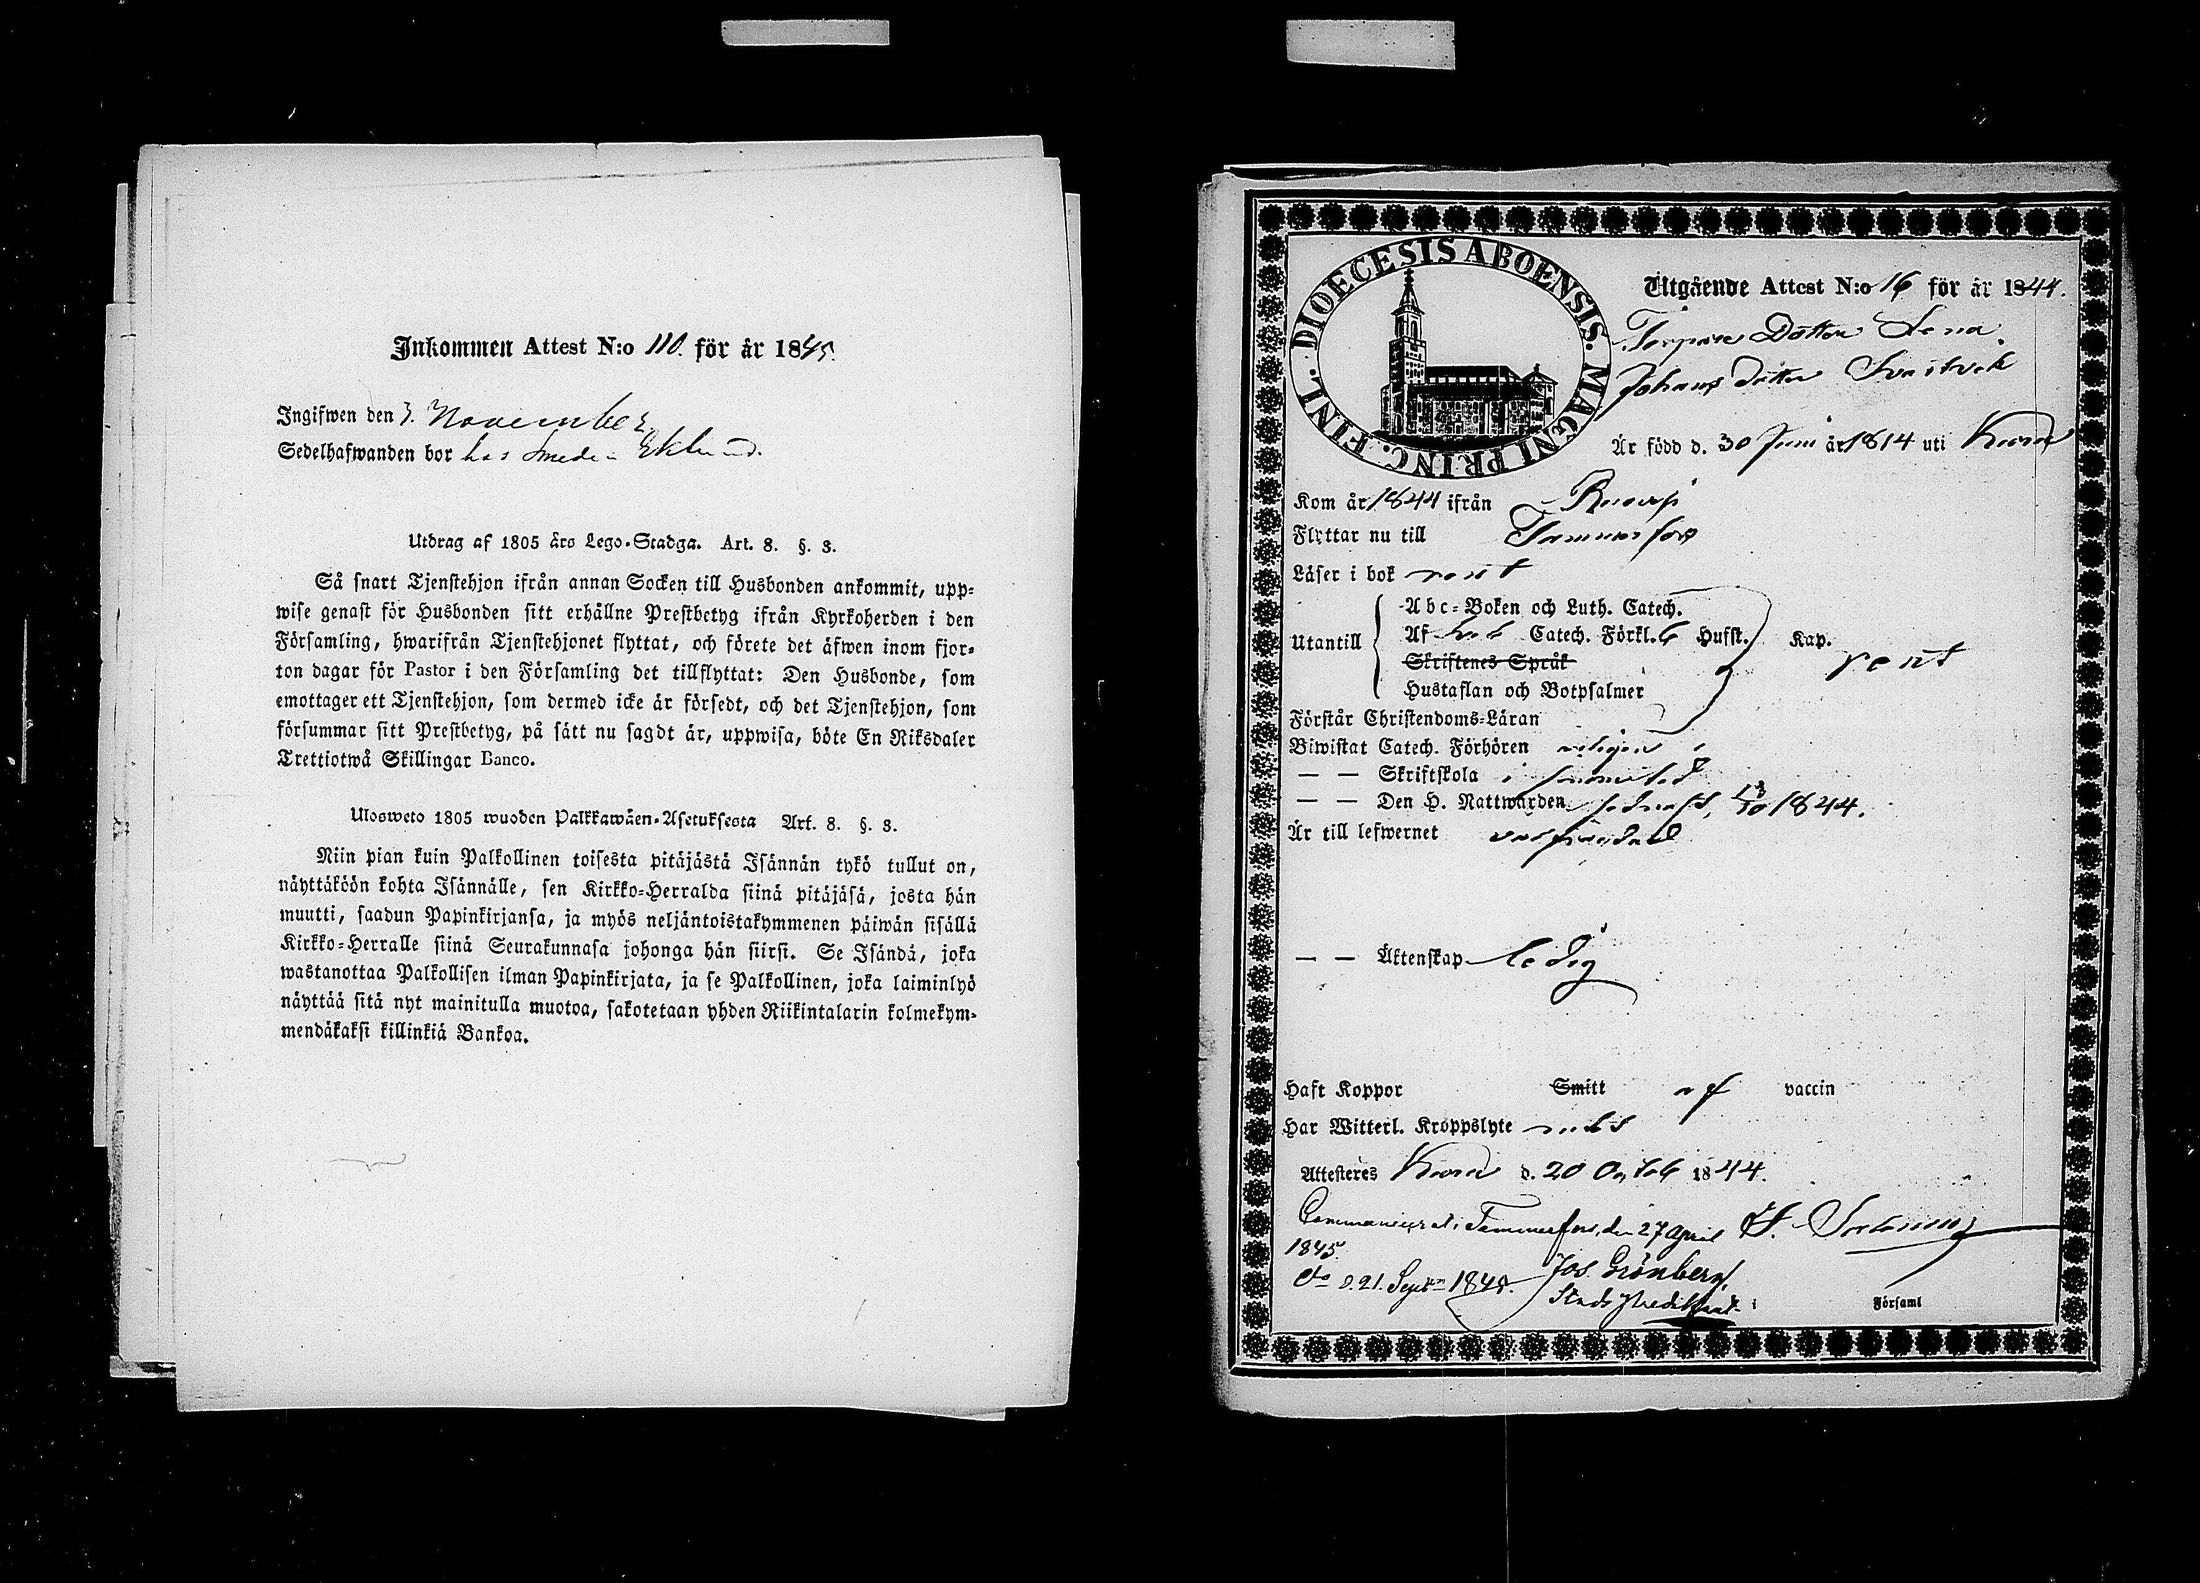 Inkommen Attest N:o 110. för år 1845.
Ingifwen den 3. November
Sedelhafwanden bor hos Smeden Eklund.
Utdrag af 1805 års Lego-Stadga. Art. 8. §. 3.
Så snart Tjenstehjon ifrån annan Socken till Husbonden ankommit, upp-
wise genast för Husbonden sitt erhållne Prestbetyg ifrån Kyrkoherden i den
Församling, hwarifrån Tjenstehjonet flyttat, och förete det äfwen inom fjor-
ton dagar för Pastor i den Församling det tillflyttat: Den Husbonde, som
emottager ett Tjenstehjon, som dermed icke är försedt, och det Tjenstehjon, som
försummar sitt Prestbetyg, på sätt nu sagdt är, uppwisa, böte En Riksdaler
Trettiotwå Skillingar Banco.
Ulosweto 1805 wuoden Palkkawäen-Asetuksesta Art. 8. §. 3.
Niin pian kuin Palkollinen toisesta pitäjästä Isännän tykö tullut on,
näyttäköön kohta Isännälle, sen Kirkko-Herralda siinä pitäjäsä, josta hän
muutti, saadun Papinkirjansa, ja myös neljäntoistakymmenen päiwän sisällä
Kirkko-Herralle siinä Seurakunnasa johonga hän siirsi. Se Isändä, joka
wastanottaa Palkollisen ilman Papinkirjata, ja se Palkollinen, joka laiminlyö
näyttää sitä nyt mainitulla muotoa, sakotetaan yhden Riikintalarin kolmekym-
mendäkaksi killinkiä Bankoa.
DIOECESIS ABOENSIS. MAGNI PRINC. FINL.
Utgående Attest N:o 16 för år 1844.
Torpare Dotter Lena
Johans dotter
Är född d. 30 Juni år 1814 uti
Kom år 1844 ifrån Ruovesi
Flyttar nu till Tammerfors
Läser i bok rent
Utantill
Abc-Boken och Luth. Catech.
Af Catech. Förkl. 6 Hufst. Kap. rent
Skriftenes Språk
Hustaflan och Botpsalmer
Förstår Christendoms-Läran
Biwistat Catech. Förhören
— — Skriftskola
— — Den H. Nattwarden senast, 13/10 1844.
Är till lefwernet
— — Äktenskap ledig
Haft Koppor Smitt af vaccin
Har Witterl. Kroppslyte
Attesteres d. 20 Octob 1844.
Communicerat i Tammerfors, den 27 April
1845.
do d. 21. Septr 1845. Jos. Grönberg,
i Församl